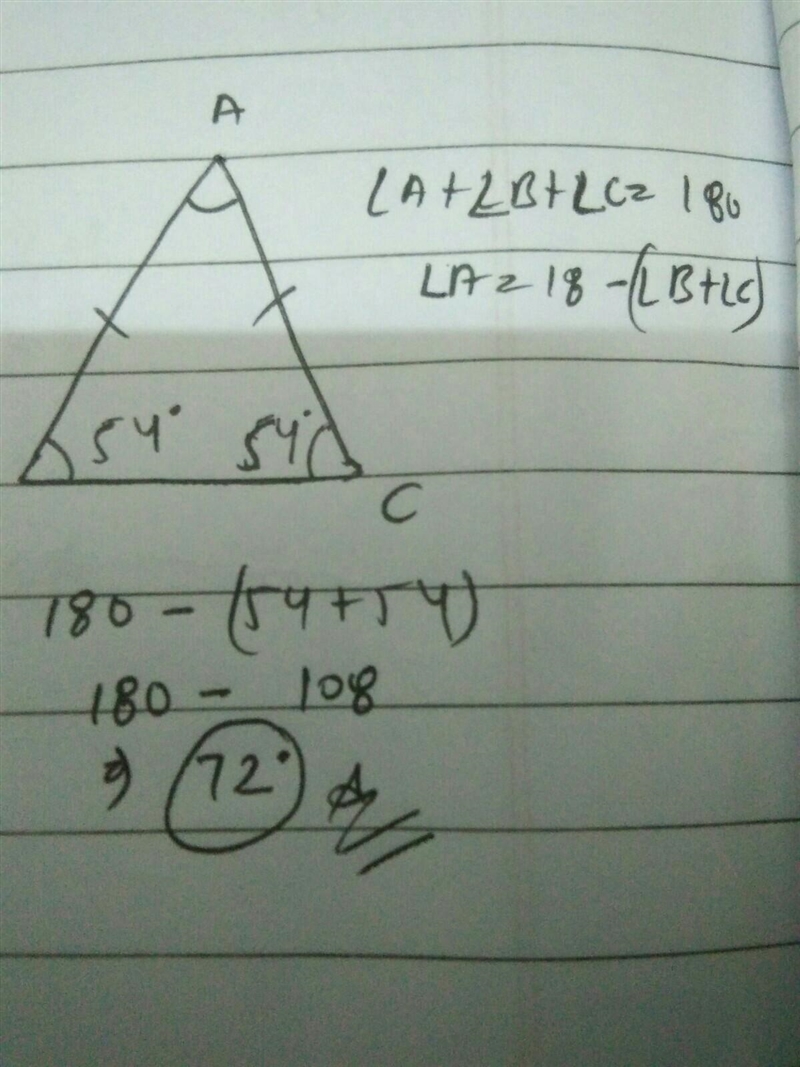 A
∠A+∠B+∠C= 180
∠A = 18 -(∠B+∠C)
54° 54°
C
180 - (54+54)
180 - 108
⇒ 72° A